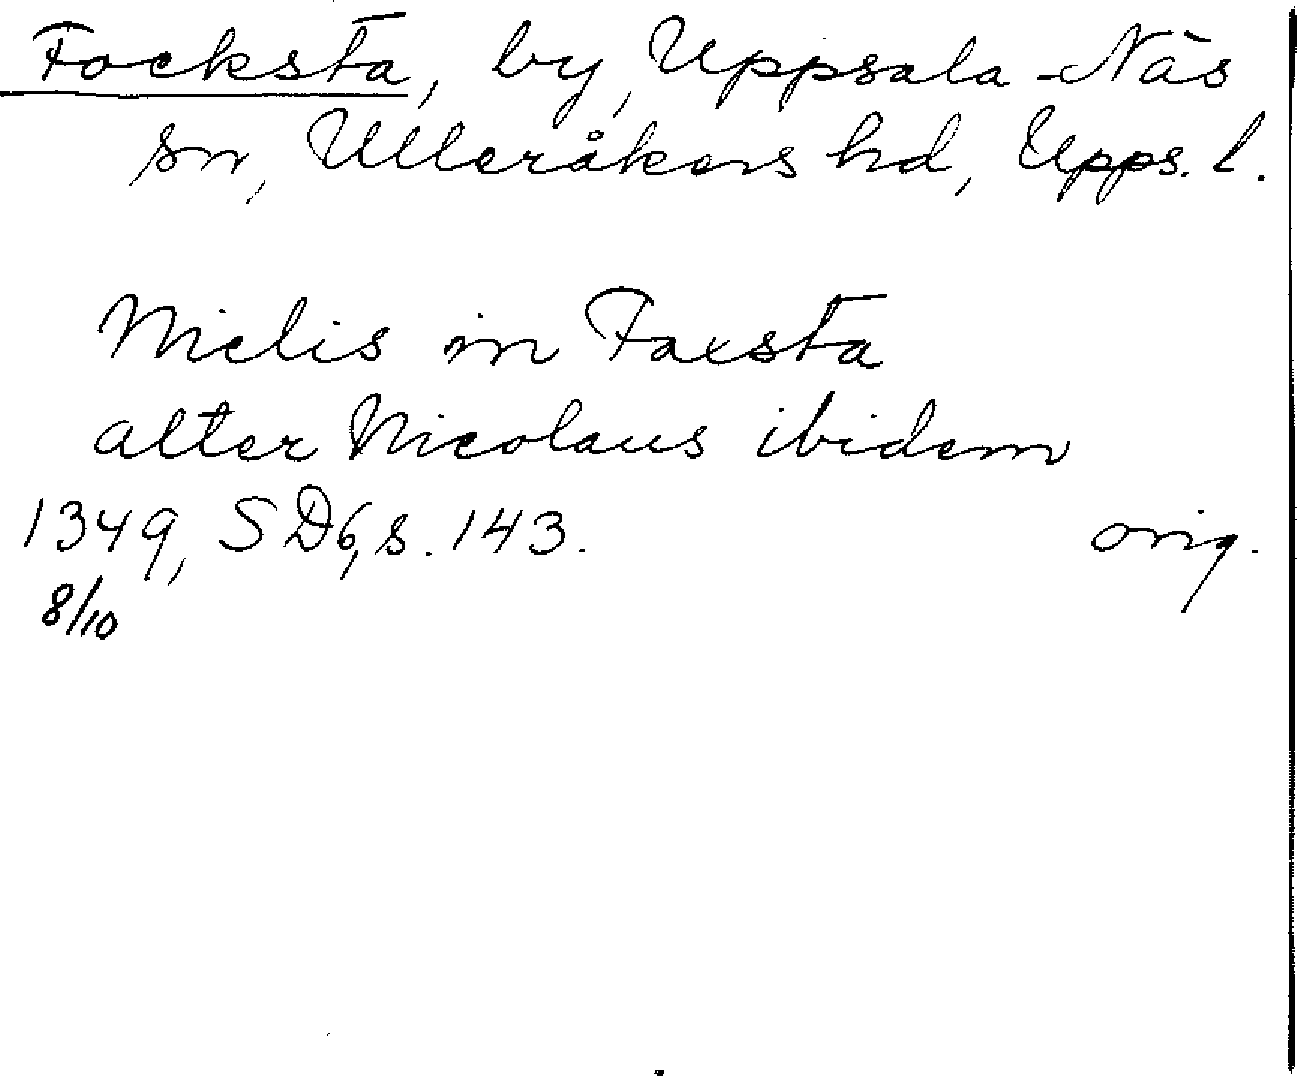 Focksta, by, Uppsala-Näs
sn, Ulleråkers hd, Upps. l.
Niclis in Faxsta
alter Nicolaus ibidem
1349, SD6, s. 143. orig.
8/10